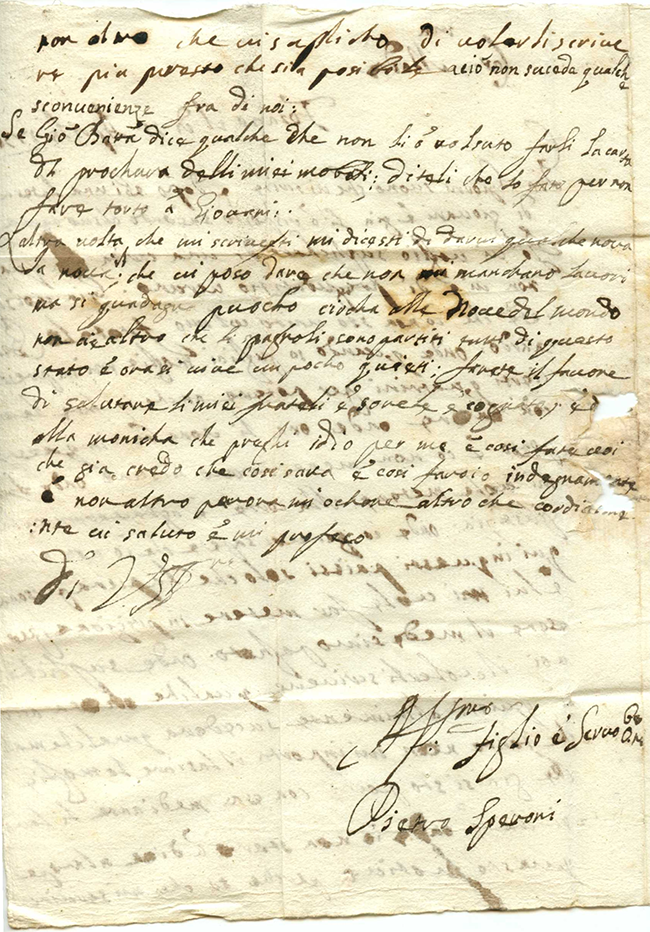 non altro che vi suplicho di volerli scrive
re piu presto che sia posibile acio non suceda qualche
sconvenienze fra di noi:
Se Gio Bara dice qualche che non li ò volsuto farli la carta
di prochura delli miei mobili; diteli che lo fato per non
fare torto à Giovani:
L altra volta che mi scrivesti mi dicesti di darvi qualche nova
la nova che vi poso dare che non mi manchano lavori
ma si guadagn puocho circha alle Nove del mondo
non ai altro che li pagnoli sono partiti tutti di questo
stato è ora si vive un pocho quieti: farete il favore
di salutare li miei frateli è sorele è cognate; è
alla monicha che preghi idio per me è cosi fate voi
che gia credo che cosi sara è cosi farò io indegnamente
è non altro per ora mi ochore altro che cordialme
:nte vi saluto è mi profeso
Di V. S.
Aff.mo figlio è Servo
Pietro Speroni